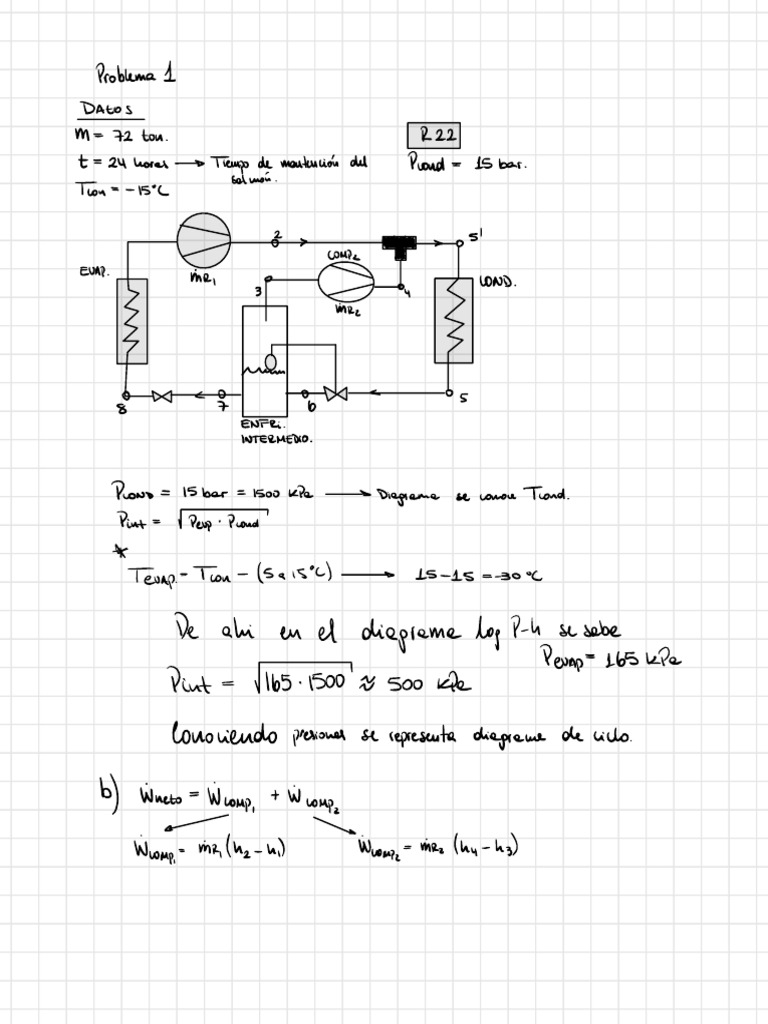 Problema 1
DATOS
m = 72 ton.
R22
t = 24 horas → Tiempo de mantención del salmón.
Pcond = 15 bar.
Tcon = -15°C
2
5'
EVAP.
ṁR1
COMP2
3
4
ṁR2
COND.
8
7
6
5
ENFRI.
INTERMEDIO.
PCOND = 15 bar = 1500 kPa → Diagrama se conoce Tcond.
Pint = √Pevp · Pcond
*
TEVAP. = Tcon - (5 a 15°C) → 15-15 = -30°C
De ahi en el diagrama log P-h se sabe
PEVAP = 165 kPa
Pint = √165 · 1500 ≈ 500 kPa
Conociendo presiones se representa diagrama de ciclo.
b) Ẇneto = Ẇcomp1 + Ẇcomp2
Ẇcomp1 = ṁR1 (h2 - h1)
Ẇcomp2 = ṁR2 (h4 - h3)